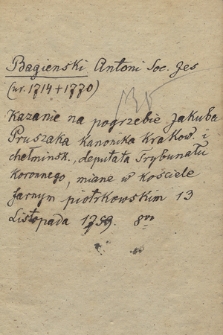 Bagienski Antoni Soc. Jes
(ur. 1714 + 1770)
Kazanie na pogrzebie Jakuba
Pruszaka kanonika Krakow. i
chełminsk., deputata Trybunału
koronnego, miane w kościele
farnym piotrkowskim 13
Listopada 1759. 8vo